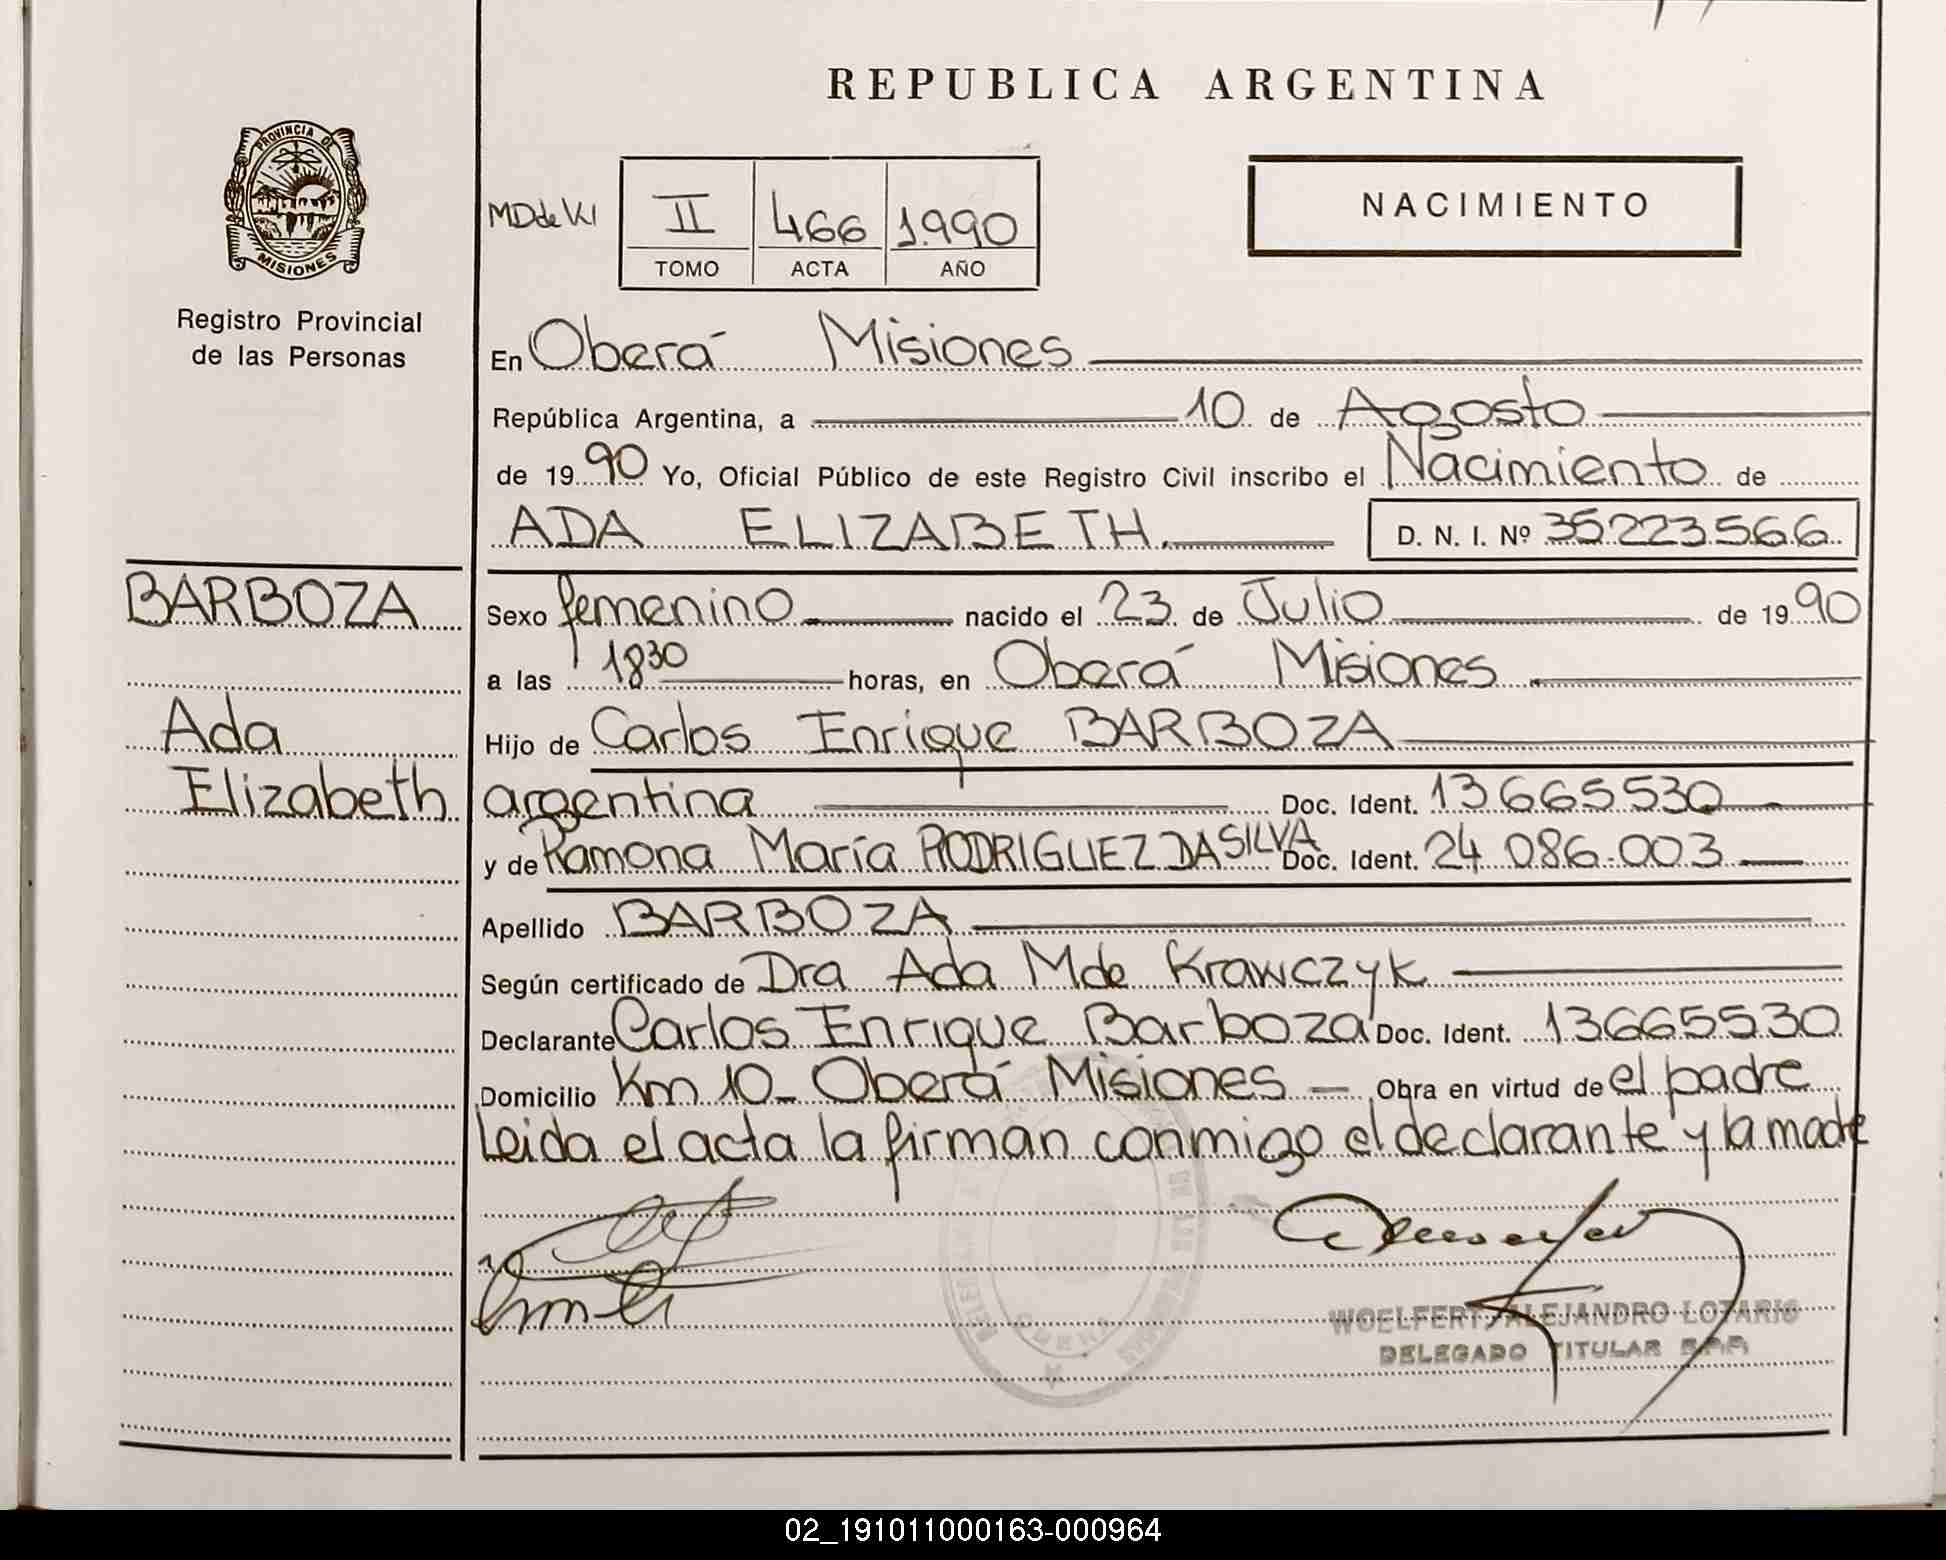 REPUBLICA ARGENTINA
PROVINCIA DE
MISIONES
Registro Provincial
de las Personas
NACIMIENTO
II 466 1.990
TOMO ACTA AÑO
En Oberá Misiones
República Argentina, a 10 de Agosto
de 1990 Yo, Oficial Público de este Registro Civil inscribo el Nacimiento de
ADA ELIZABETH. D. N. I. Nº 35223566
BARBOZA
Ada
Elizabeth
Sexo femenino nacido el 23 de Julio de 1990
a las 18³⁰ horas, en Oberá Misiones
Hijo de Carlos Enrique BARBOZA
argentina Doc. Ident. 13665530
y de Ramona María RODRIGUEZ DA SILVA Doc. Ident. 24.086.003
Apellido BARBOZA
Según certificado de Dra Ada M de Krawczyk
Declarante Carlos Enrique Barboza Doc. Ident. 13665530
Domicilio Km 10_ Oberá Misiones — Obra en virtud de el padre
Leida el acta la firman conmigo el declarante y la madre
WOELFERT, ALEJANDRO LOTARIO
DELEGADO TITULAR
02_191011000163-000964